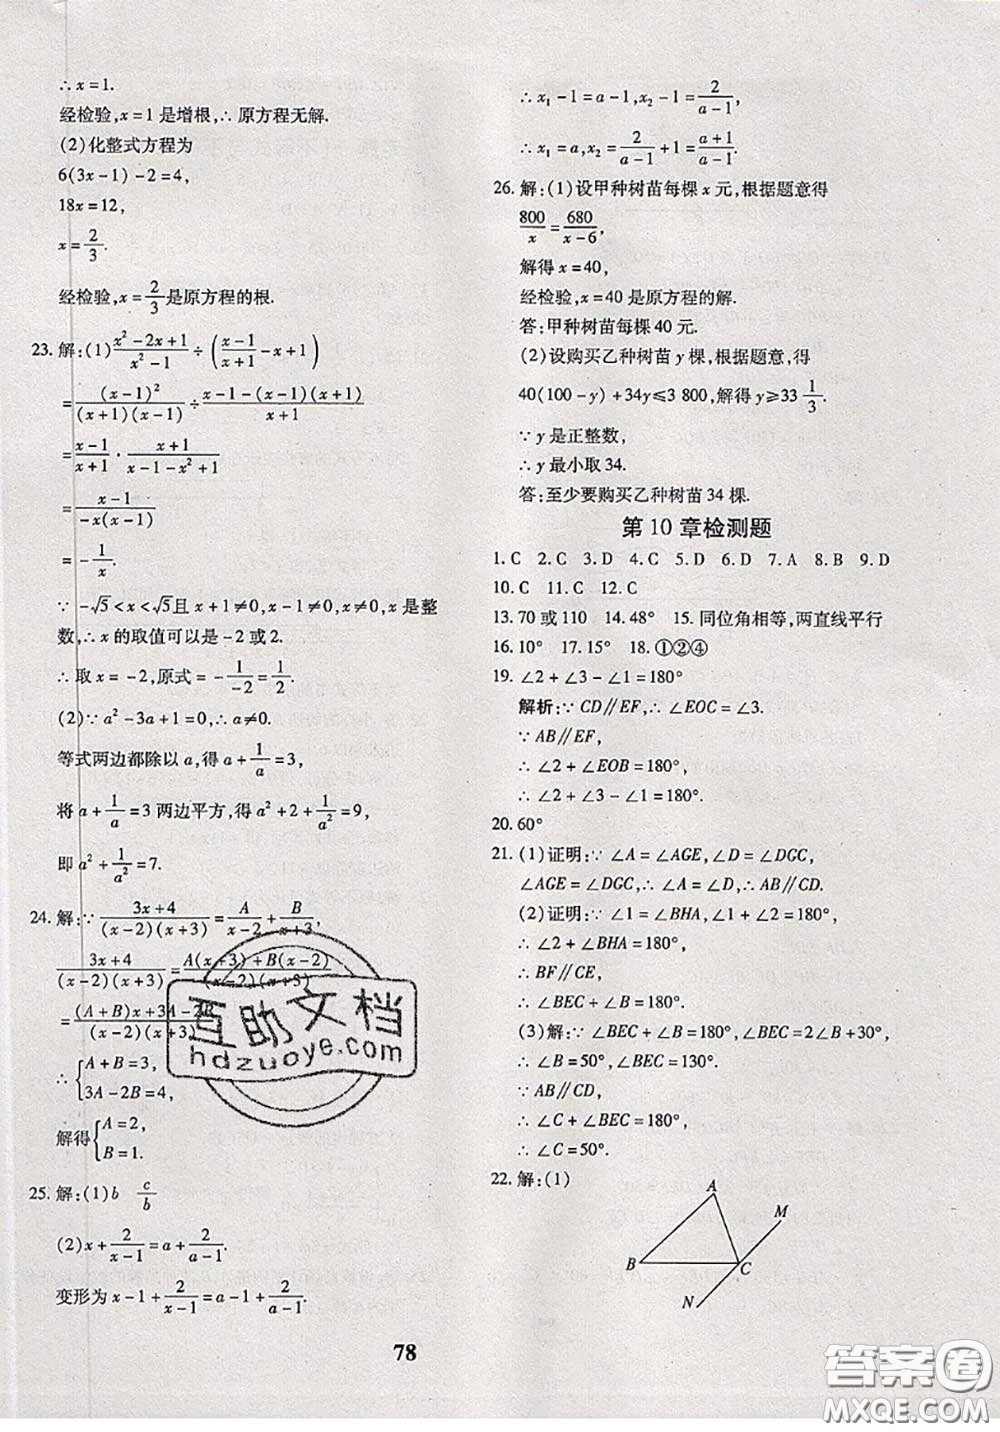 ∴ x=1.
经检验,x=1 是增根,∴ 原方程无解.
(2)化整式方程为
6(3x-1)-2=4,
18x=12,
x=2/3.
经检验,x=2/3是原方程的根.
23. 解:(1)(x²-2x+1)/(x²-1)÷((x-1)/(x+1)-x+1)
=(x-1)²/((x+1)(x-1))÷(x-1-(x-1)(x+1))/(x+1)
=(x-1)/(x+1)·(x+1)/(x-1-x²+1)
=(x-1)/(-x(x-1))
=-1/x.
∵ -√5<x<√5且 x+1≠0,x-1≠0,x≠0,x 是整
数,∴ x 的取值可以是-2 或 2.
∴ 取 x=-2,原式=-1/(-2)=1/2.
(2)∵ a²-3a+1=0,∴ a≠0.
等式两边都除以 a,得 a+1/a=3,
将 a+1/a=3 两边平方,得 a²+2+1/a²=9,
即 a²+1/a²=7.
24. 解:∵ (3x+4)/((x-2)(x+3))=A/(x-2)+B/(x+3),
(3x+4)/((x-2)(x+3))=(A(x+3)+B(x-2))/((x-2)(x+3))
=((A+B)x+3A-2B)/((x-2)(x+3)),
∴ {A+B=3,
3A-2B=4,
解得{A=2,
B=1.
25. 解:(1)b c/b
(2)x+2/(x-1)=a+2/(a-1).
变形为 x-1+2/(x-1)=a-1+2/(a-1).
∴ x₁-1=a-1,x₂-1=2/(a-1),
∴ x₁=a,x₂=2/(a-1)+1=(a+1)/(a-1).
26. 解:(1)设甲种树苗每棵 x 元,根据题意得
800/x=680/(x-6),
解得 x=40,
经检验,x=40 是原方程的解.
答:甲种树苗每棵 40 元.
(2)设购买乙种树苗 y 棵,根据题意,得
40(100-y)+34y≤3 800,解得 y≥33 1/3.
∵ y 是正整数,
∴ y 最小取 34.
答:至少要购买乙种树苗 34 棵.
第 10 章检测题
1. C 2. C 3. D 4. C 5. D 6. D 7. A 8. B 9. D
10. C 11. C 12. C
13. 70 或 110 14. 48° 15. 同位角相等,两直线平行
16. 10° 17. 15° 18. ①②④
19. ∠2+∠3-∠1=180°
解析:∵ CD∥EF,∴ ∠EOC=∠3.
∵ AB∥EF,
∴ ∠2+∠EOB=180°,
∴ ∠2+∠3-∠1=180°.
20. 60°
21. (1)证明:∵ ∠A=∠AGE,∠D=∠DGC,
∠AGE=∠DGC,∴ ∠A=∠D,∴ AB∥CD.
(2)证明:∵ ∠1=∠BHA,∠1+∠2=180°,
∴ ∠2+∠BHA=180°,
∴ BF∥CE,
∴ ∠BEC+∠B=180°.
(3)解:∵ ∠BEC+∠B=180°,∠BEC=2∠B+30°,
∴ ∠B=50°,∠BEC=130°.
∵ AB∥CD,
∴ ∠C+∠BEC=180°,
∴ ∠C=50°.
22. 解:(1)
A
M
B
C
N
78
互助文档
hdzuoye.com
答案卷
MXQE.COM